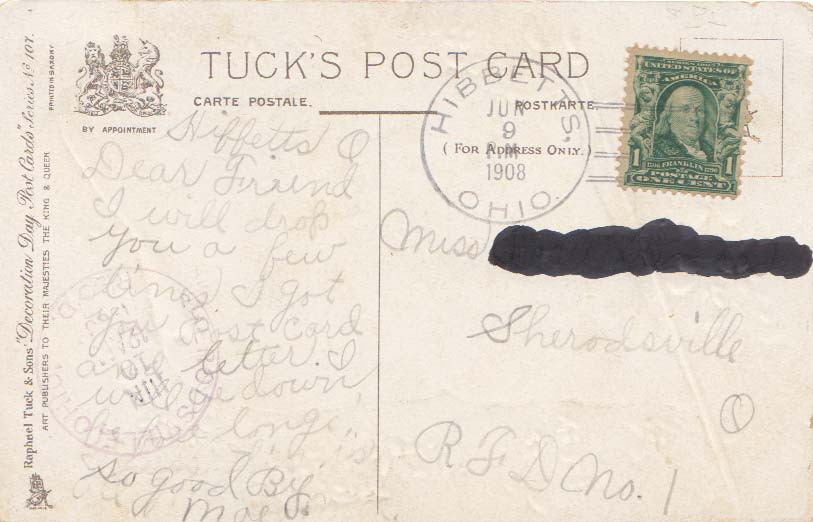 TUCK'S POST CARD
CARTE POSTALE.
POSTKARTE.
( FOR ADDRESS ONLY. )
BY APPOINTMENT
Raphael Tuck & Sons' "Decoration Day Post Cards" Series. No 107.
PRINTED IN SAXONY
ART PUBLISHERS TO THEIR MAJESTIES THE KING & QUEEN
HIBBETTS,
JUN
9
1908
OHIO.
SERIES 1902
UNITED STATES OF
AMERICA
1 1
FRANKLIN
POSTAGE
ONE CENT
Hibbetts O
Dear Friend
I will drop
you a few
lines I got
you Post card
and letter. I
will be down
long
so good By
Mae
Miss
Sherodsville
O
R F D No. 1
JUN
10